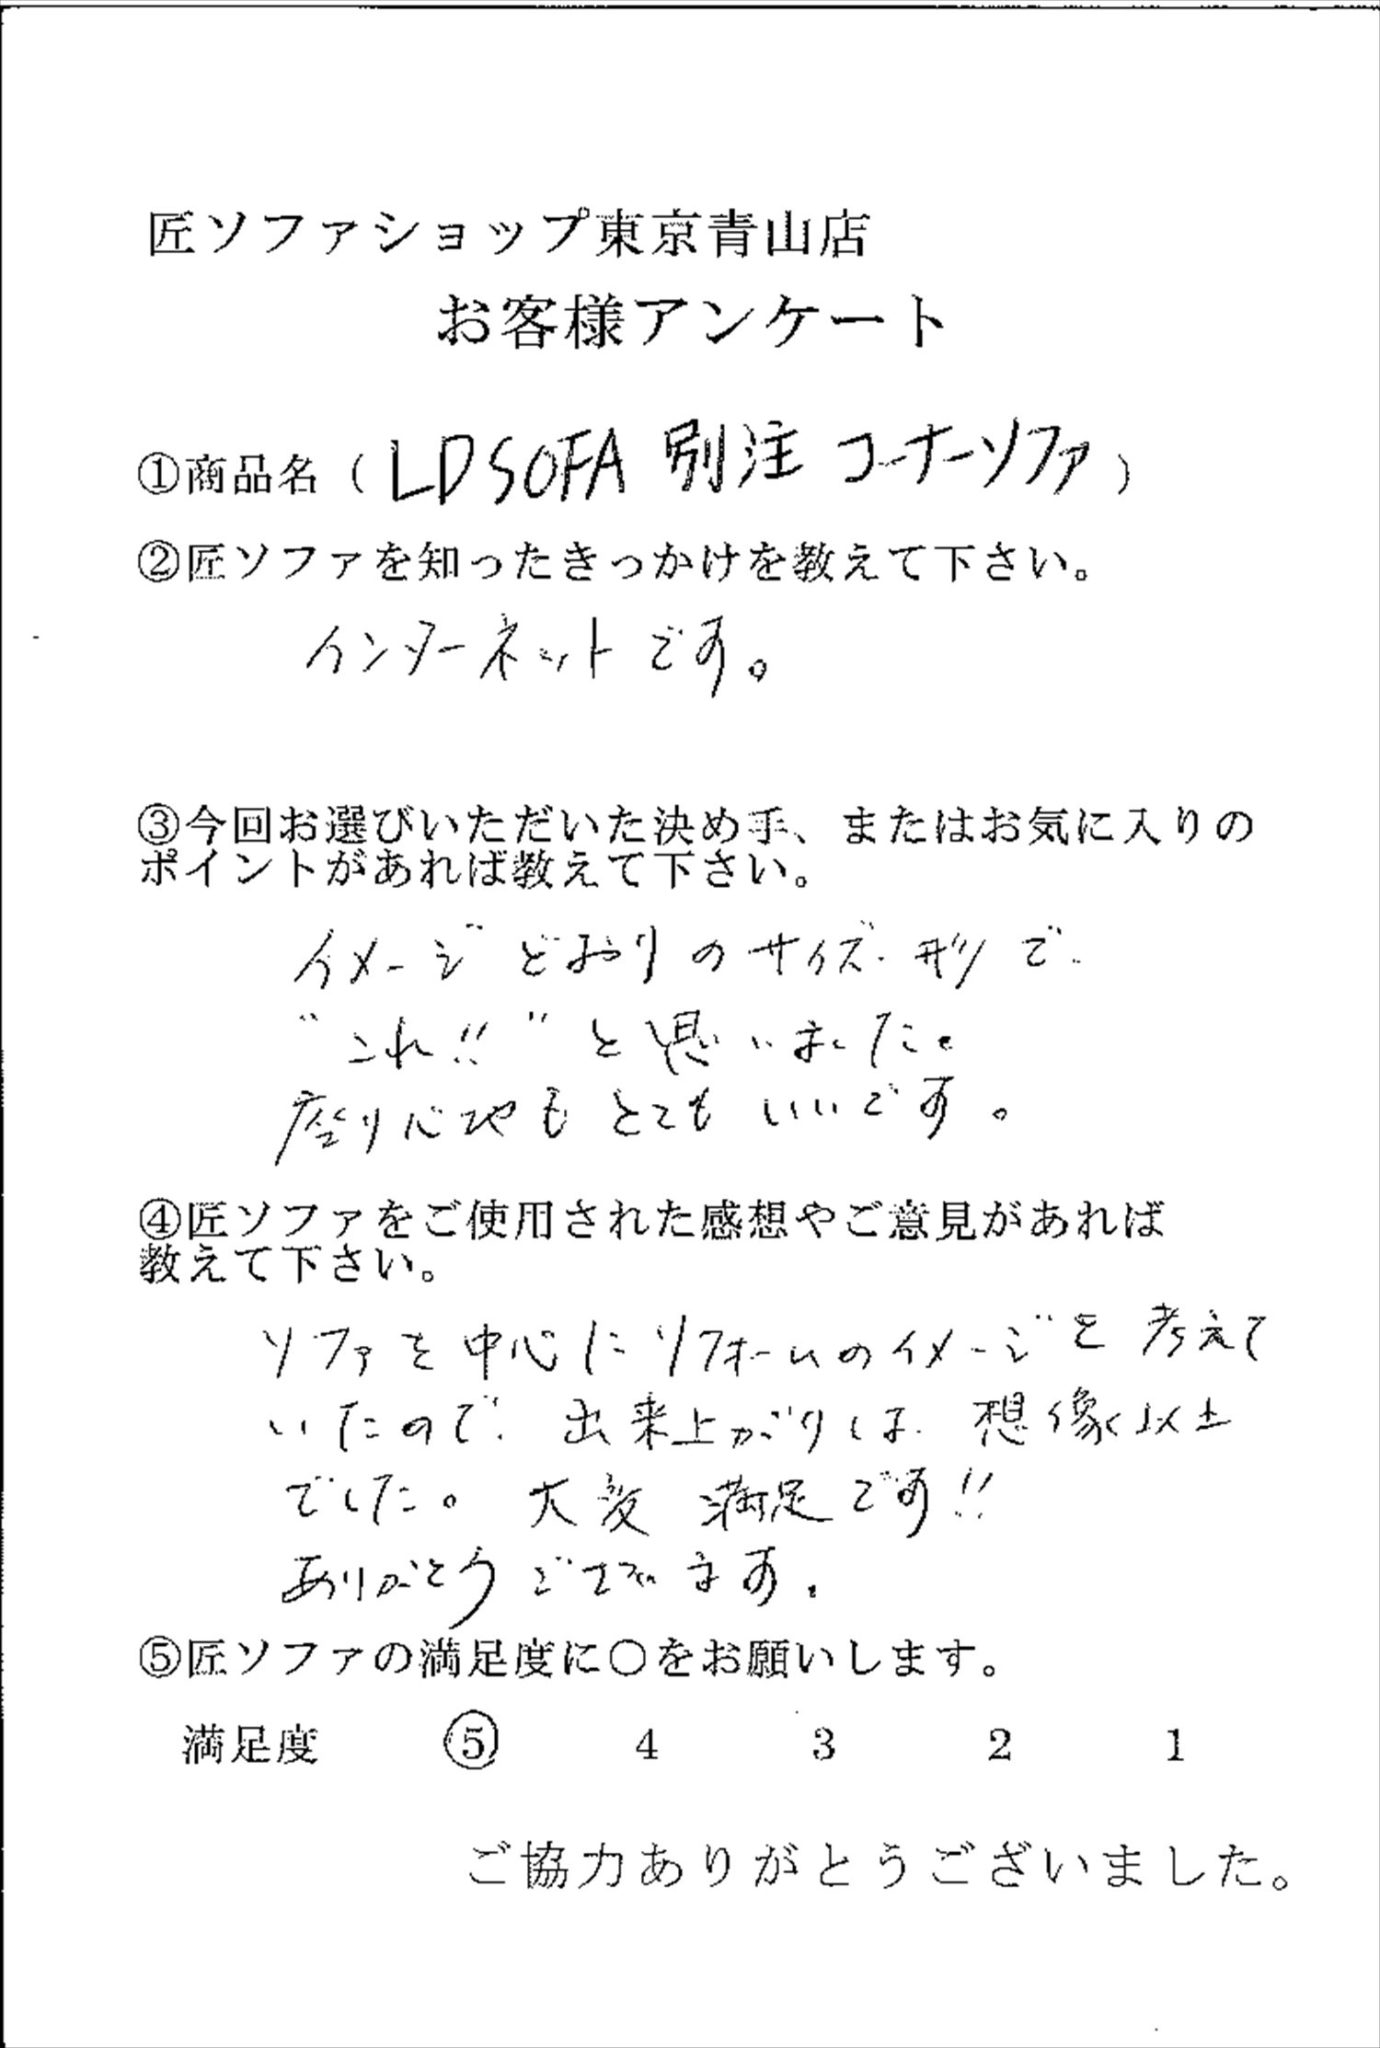 匠ソファショップ東京青山店
お客様アンケート
①商品名（LDSOFA 別注 コーナーソファ）
②匠ソファを知ったきっかけを教えて下さい。
インターネットです。
③今回お選びいただいた決め手、またはお気に入りの
ポイントがあれば教えて下さい。
イメージどおりのサイズ、形で、
"これ!!"と思いました。
座り心地もとてもいいです。
④匠ソファをご使用された感想やご意見があれば
教えて下さい。
ソファを中心にリフォームのイメージを考えて
いたので、出来上がりは、想像以上
でした。大変 満足です!!
ありがとうございます。
⑤匠ソファの満足度に〇をお願いします。
満足度 ⑤ 4 3 2 1
ご協力ありがとうございました。